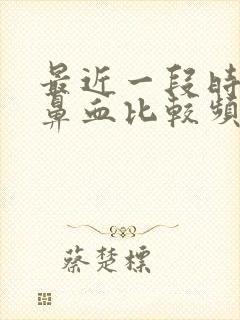 最近一段時
鼻血比較頻
蔡楚標